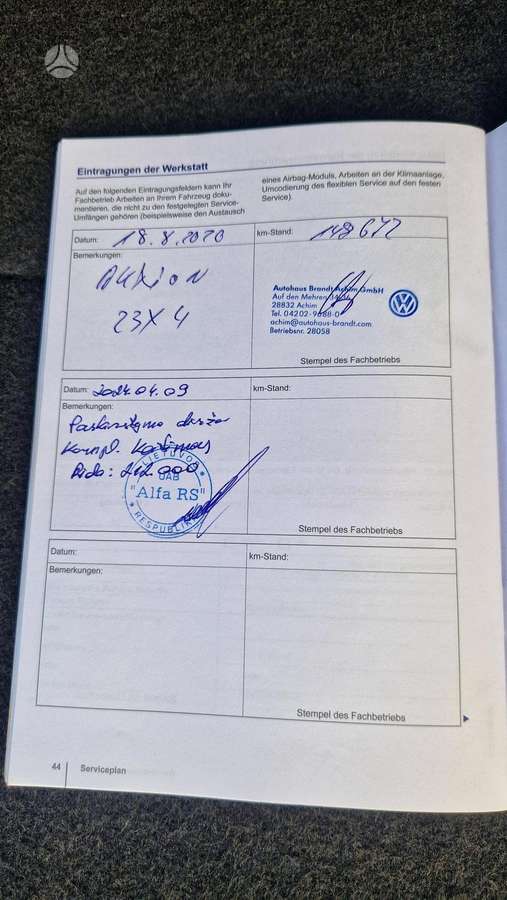 Eintragungen der Werkstatt
Auf den folgenden Eintragungsfeldern kann Ihr
Fachbetrieb Arbeiten an Ihrem Fahrzeug doku-
mentieren, die nicht zu den festgelegten Service-
Umfängen gehören (beispielsweise den Austausch
eines Airbag-Moduls, Arbeiten an der Klimaanlage,
Umcodierung des flexiblen Service auf den festen
Service).
Datum: 18.8.2020
km-Stand: 148672
Bemerkungen:
Aktion
23X4
Autohaus Brandt Achim GmbH
Auf den Mehren
28832 Achim
Tel. 04202-9688-0
achim@autohaus-brandt.com
Betriebsnr. 28058
Stempel des Fachbetriebs
Datum: 2024.04.09
km-Stand:
Bemerkungen:
Paskirstymo diržo
Kompl. Keitimas
Rida: 212.000
LIETUVOS
UAB
"Alfa RS"
RESPUBLIKA
Stempel des Fachbetriebs
Datum:
km-Stand:
Bemerkungen:
Stempel des Fachbetriebs
44
Serviceplan